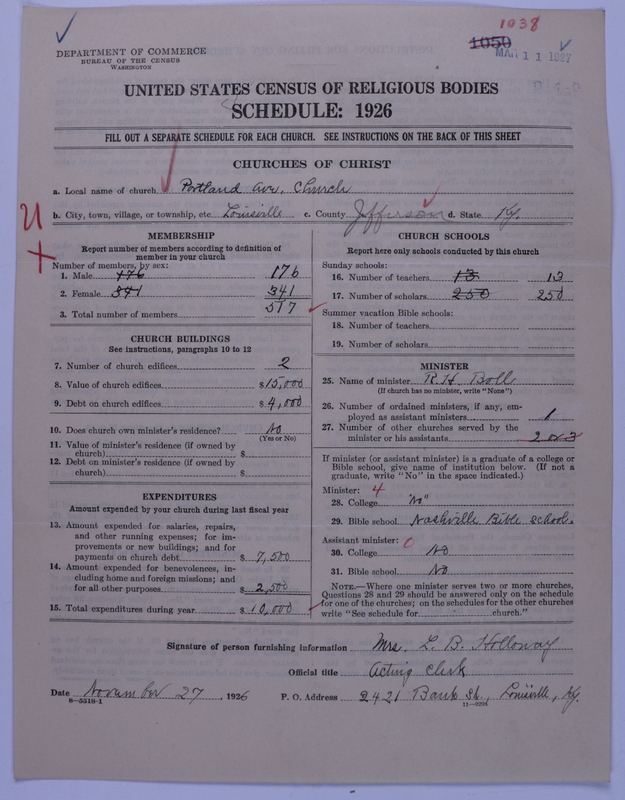 1938
1050
MAR 11 1927
DEPARTMENT OF COMMERCE
BUREAU OF THE CENSUS
WASHINGTON
UNITED STATES CENSUS OF RELIGIOUS BODIES
SCHEDULE: 1926
FILL OUT A SEPARATE SCHEDULE FOR EACH CHURCH. SEE INSTRUCTIONS ON THE BACK OF THIS SHEET
CHURCHES OF CHRIST
a. Local name of church Portland Ave. Church
b. City, town, village, or township, etc. Louisville c. County Jefferson d. State Ky.
MEMBERSHIP
Report number of members according to definition of
member in your church
Number of members, by sex:
1. Male 176 176
2. Female 341 341
3. Total number of members 517
CHURCH BUILDINGS
See instructions, paragraphs 10 to 12
7. Number of church edifices 2
8. Value of church edifices $15,000
9. Debt on church edifices $4,000
10. Does church own minister's residence? No
(Yes or No)
11. Value of minister's residence (if owned by
church) $
12. Debt on minister's residence (if owned by
church) $
EXPENDITURES
Amount expended by your church during last fiscal year
13. Amount expended for salaries, repairs,
and other running expenses; for im-
provements or new buildings; and for
payments on church debt $ 7,500
14. Amount expended for benevolences, in-
cluding home and foreign missions; and
for all other purposes $ 2,500
15. Total expenditures during year $ 10,000
CHURCH SCHOOLS
Report here only schools conducted by this church
Sunday schools:
16. Number of teachers 13 13
17. Number of scholars 250 250
Summer vacation Bible schools:
18. Number of teachers
19. Number of scholars
MINISTER
25. Name of minister R.H. Boll
(If church has no minister, write "None")
26. Number of ordained ministers, if any, em-
ployed as assistant ministers 1
27. Number of other churches served by the
minister or his assistants 2 or 3
If minister (or assistant minister) is a graduate of a college or
Bible school, give name of institution below. (If not a
graduate, write "No" in the space indicated.)
Minister: 4
28. College "No"
29. Bible school Nashville Bible School.
Assistant minister: 0
30. College No
31. Bible school No
NOTE.—Where one minister serves two or more churches,
Questions 28 and 29 should be answered only on the schedule
for one of the churches; on the schedules for the other churches
write "See schedule for church."
Signature of person furnishing information Mrs. L. B. Holloway
Official title Acting Clerk
Date November 27, 1926 P. O. Address 2421 Bank St., Louisville, Ky.
8—5518-1 11—9298